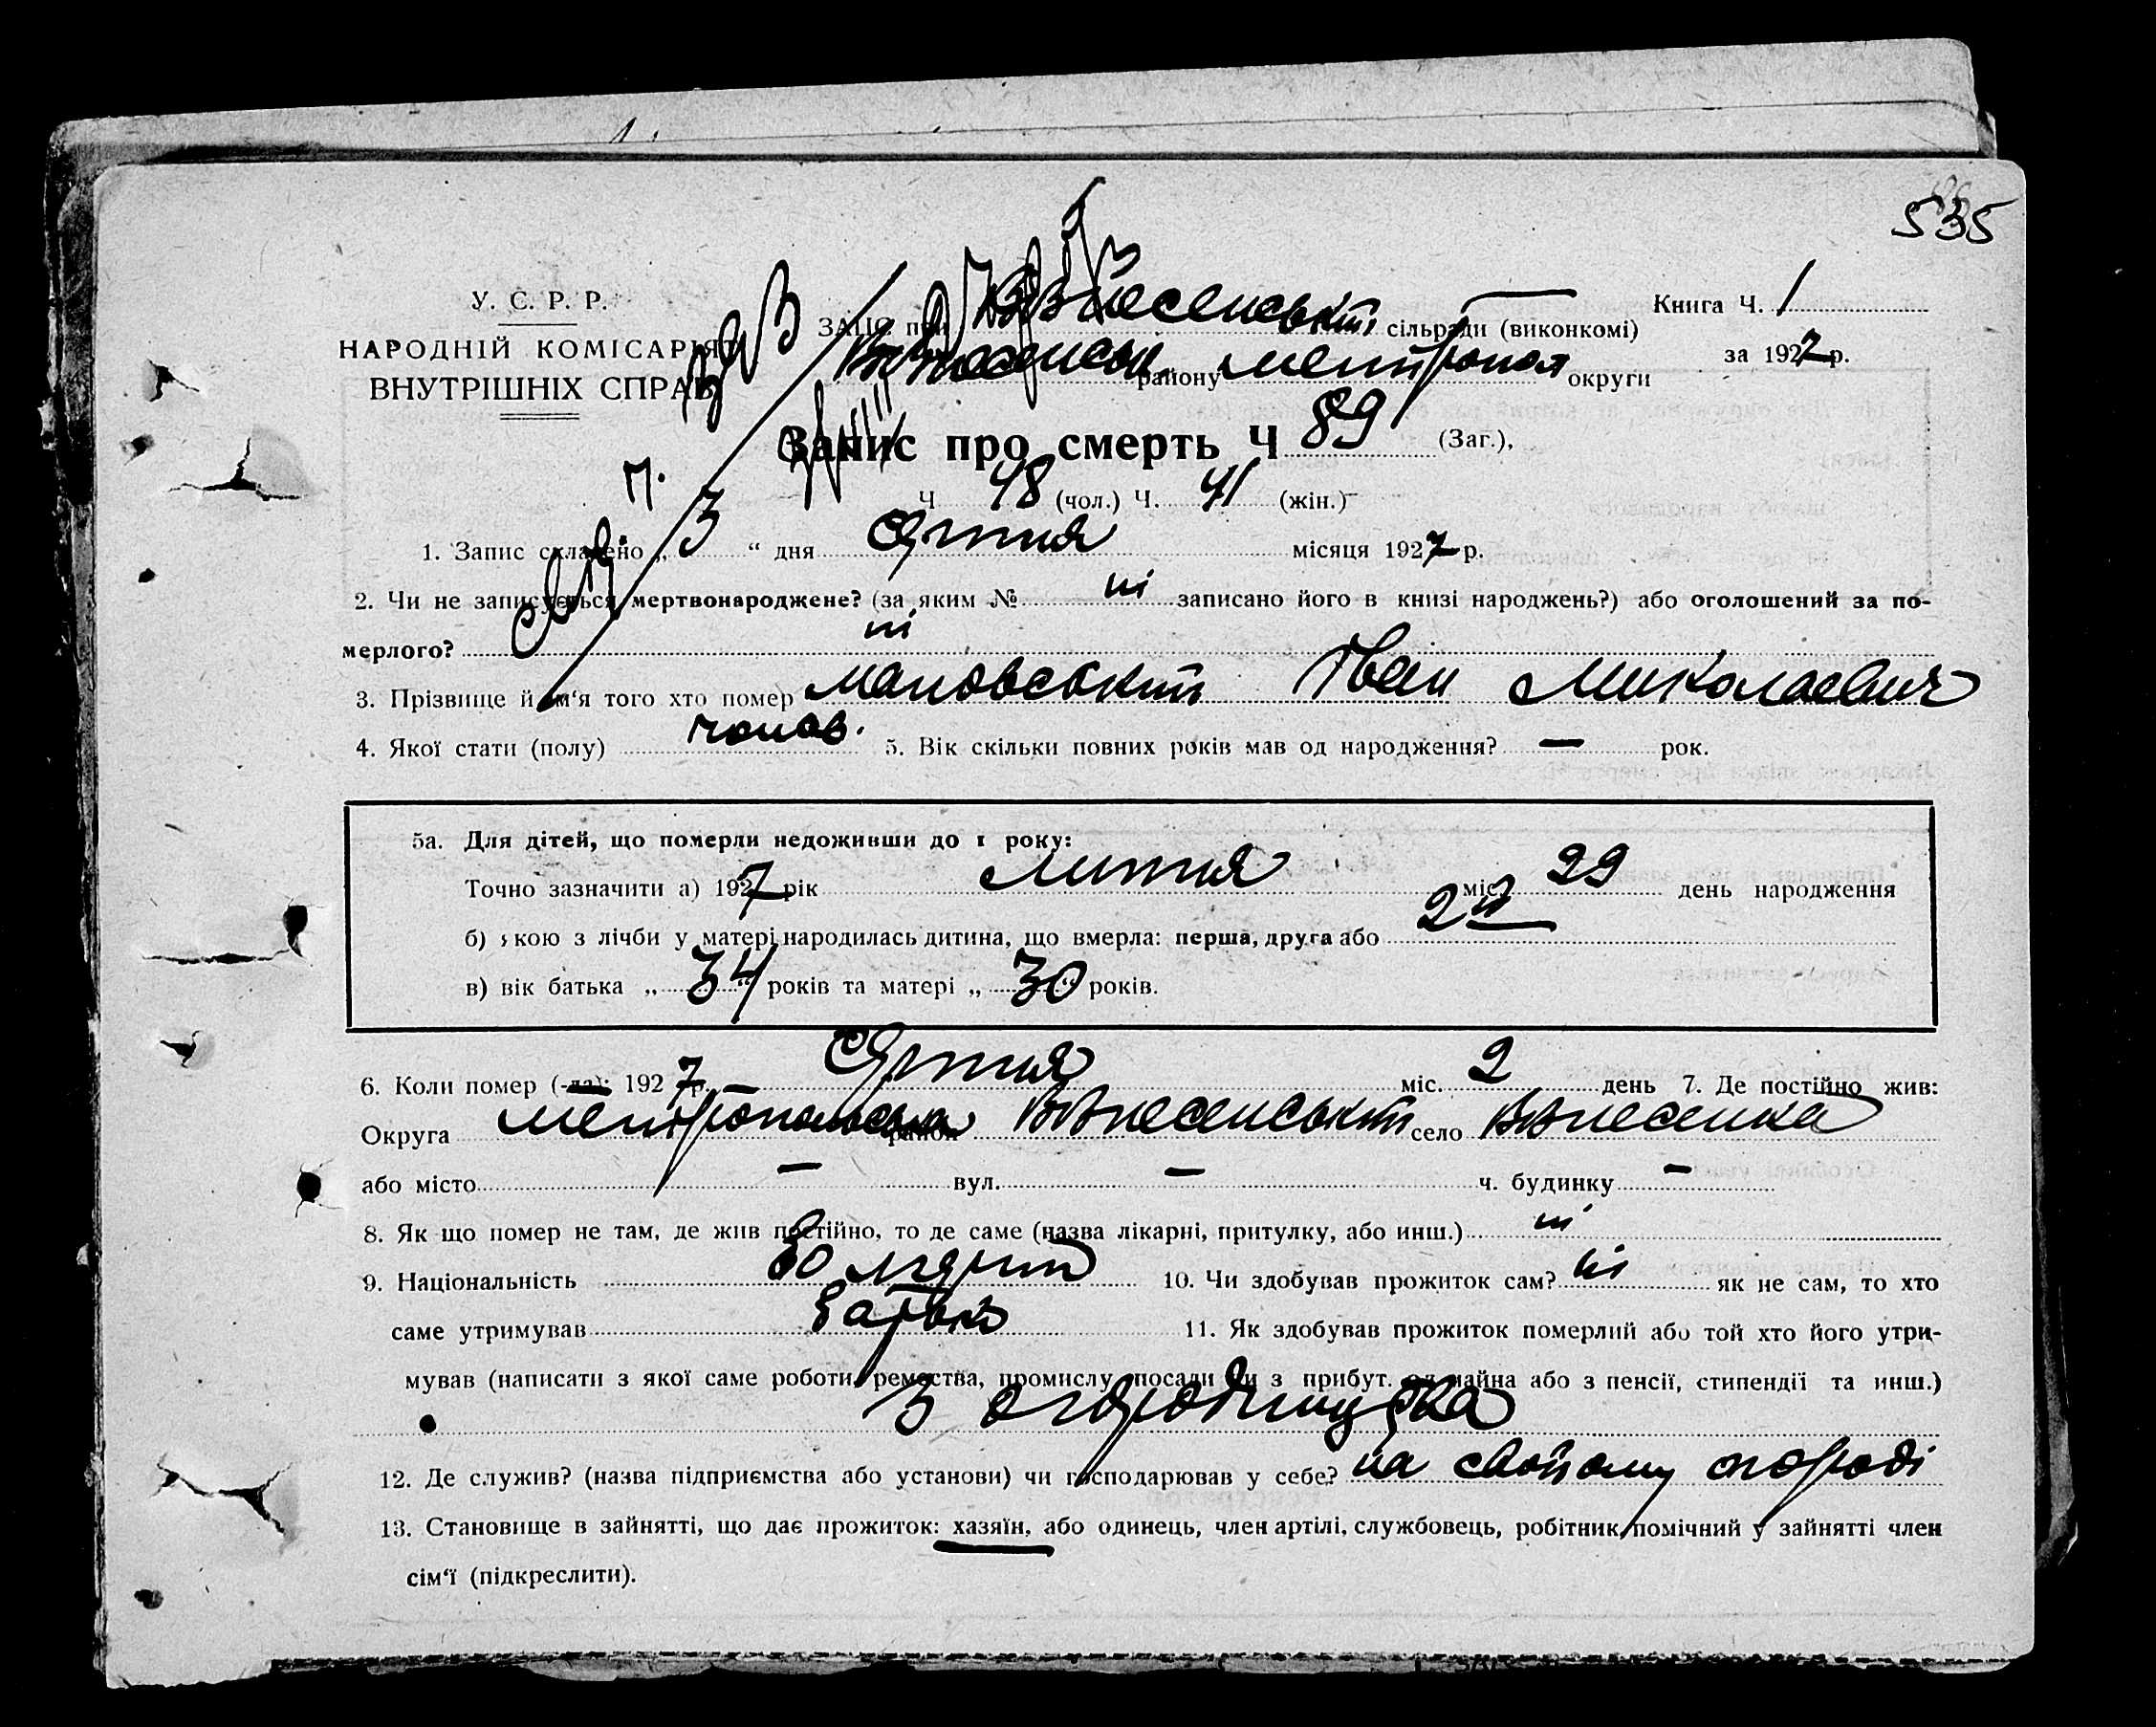 535
У. С. Р. Р.
НАРОДНІЙ КОМІСАРІЯТ
ВНУТРІШНІХ СПРАВ
ЗАПС при Вознесенській сільради (виконкомі)
Книга Ч. 1
Вознесенськ. району Мелітопол округи
за 1927 р.
Запис про смерть Ч 89 (Заг.),
Ч 48 (чол.) Ч. 41 (жін.)
1. Запис складено „ 3 “ дня Серпня місяця 1927 р.
2. Чи не записується мертвонароджене? (за яким № ні записано його в книзі народжень?) або оголошений за по-
мерлого? ні
3. Прізвище й ім‘я того хто помер Мановський Іван Миколаевич
4. Якої стати (полу) чолов. 5. Вік скільки повних років мав од народження? — рок.
5а. Для дітей, що померли недоживши до 1 року:
Точно зазначити а) 1927 рік Липня міс. 29 день народження
б) якою з лічби у матері народилась дитина, що вмерла: перша, друга або 2й
в) вік батька „ 34 “ років та матері „ 30 років.
6. Коли помер (-ла): 1927 р. Серпня міс. 2 день 7. Де постійно жив:
Округа Мелітопольська район Вознесенський село Вознесенка
або місто — вул. — ч. будинку —
8. Як що помер не там, де жив постійно, то де саме (назва лікарні, притулку, або инш.) ні
9. Національність Болгарин 10. Чи здобував прожиток сам? ні як не сам, то хто
саме утримував батько 11. Як здобував прожиток померлий або той хто його утри-
мував (написати з якої саме роботи, ремества, промислу, посади чи з прибут. од майна або з пенсії, стипендії та инш.)
З огородництва
12. Де служив? (назва підприємства або установи) чи господарював у себе? на своїому огороді
13. Становище в зайнятті, що дає прожиток: хазяїн, або одинець, член артілі, службовець, робітник, помічний у зайнятті член
сім‘ї (підкреслити).